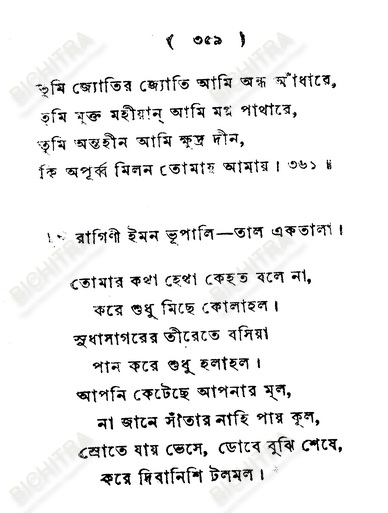 ( ৩৫৯ )
তুমি জ্যোতির জ্যোতি আমি অন্ধ আঁধারে,
তুমি মুক্ত মহীয়ান্ আমি মগ্ন পাথারে,
তুমি অন্তহীন আমি ক্ষুদ্র দীন,
কি অপূর্ব্ব মিলন তোমায় আমায়। ৩৬১ ॥
রাগিণী ইমন ভূপালি—তাল একতালা।
তোমার কথা হেথা কেহত বলে না,
করে শুধু মিছে কোলাহল।
সুধাসাগরের তীরেতে বসিয়া
পান করে শুধু হলাহল।
আপনি কেটেছে আপনার মূল,
না জানে সাঁতার নাহি পায় কূল,
স্রোতে যায় ভেসে, ডোবে বুঝি শেষে,
করে দিবানিশি টলমল।
BICHITRA
BICHITRA
BICHITRA
BICHITRA
BICHITRA
BICHITRA